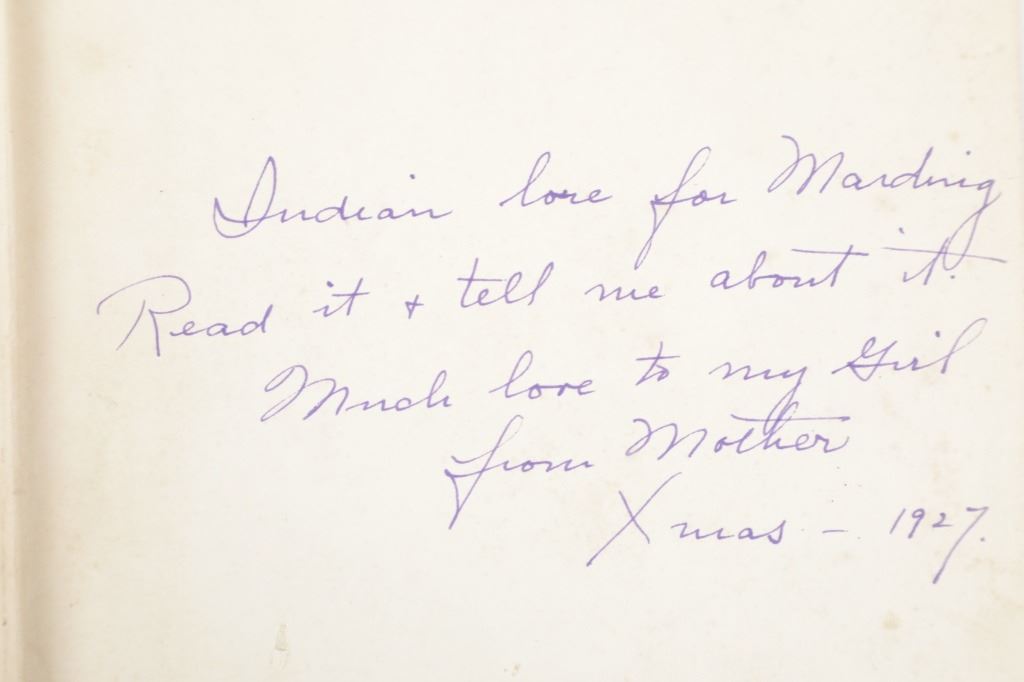 Indian lore for Marding
Read it + tell me about it.
Much love to my Girl
from Mother
Xmas - 1927.